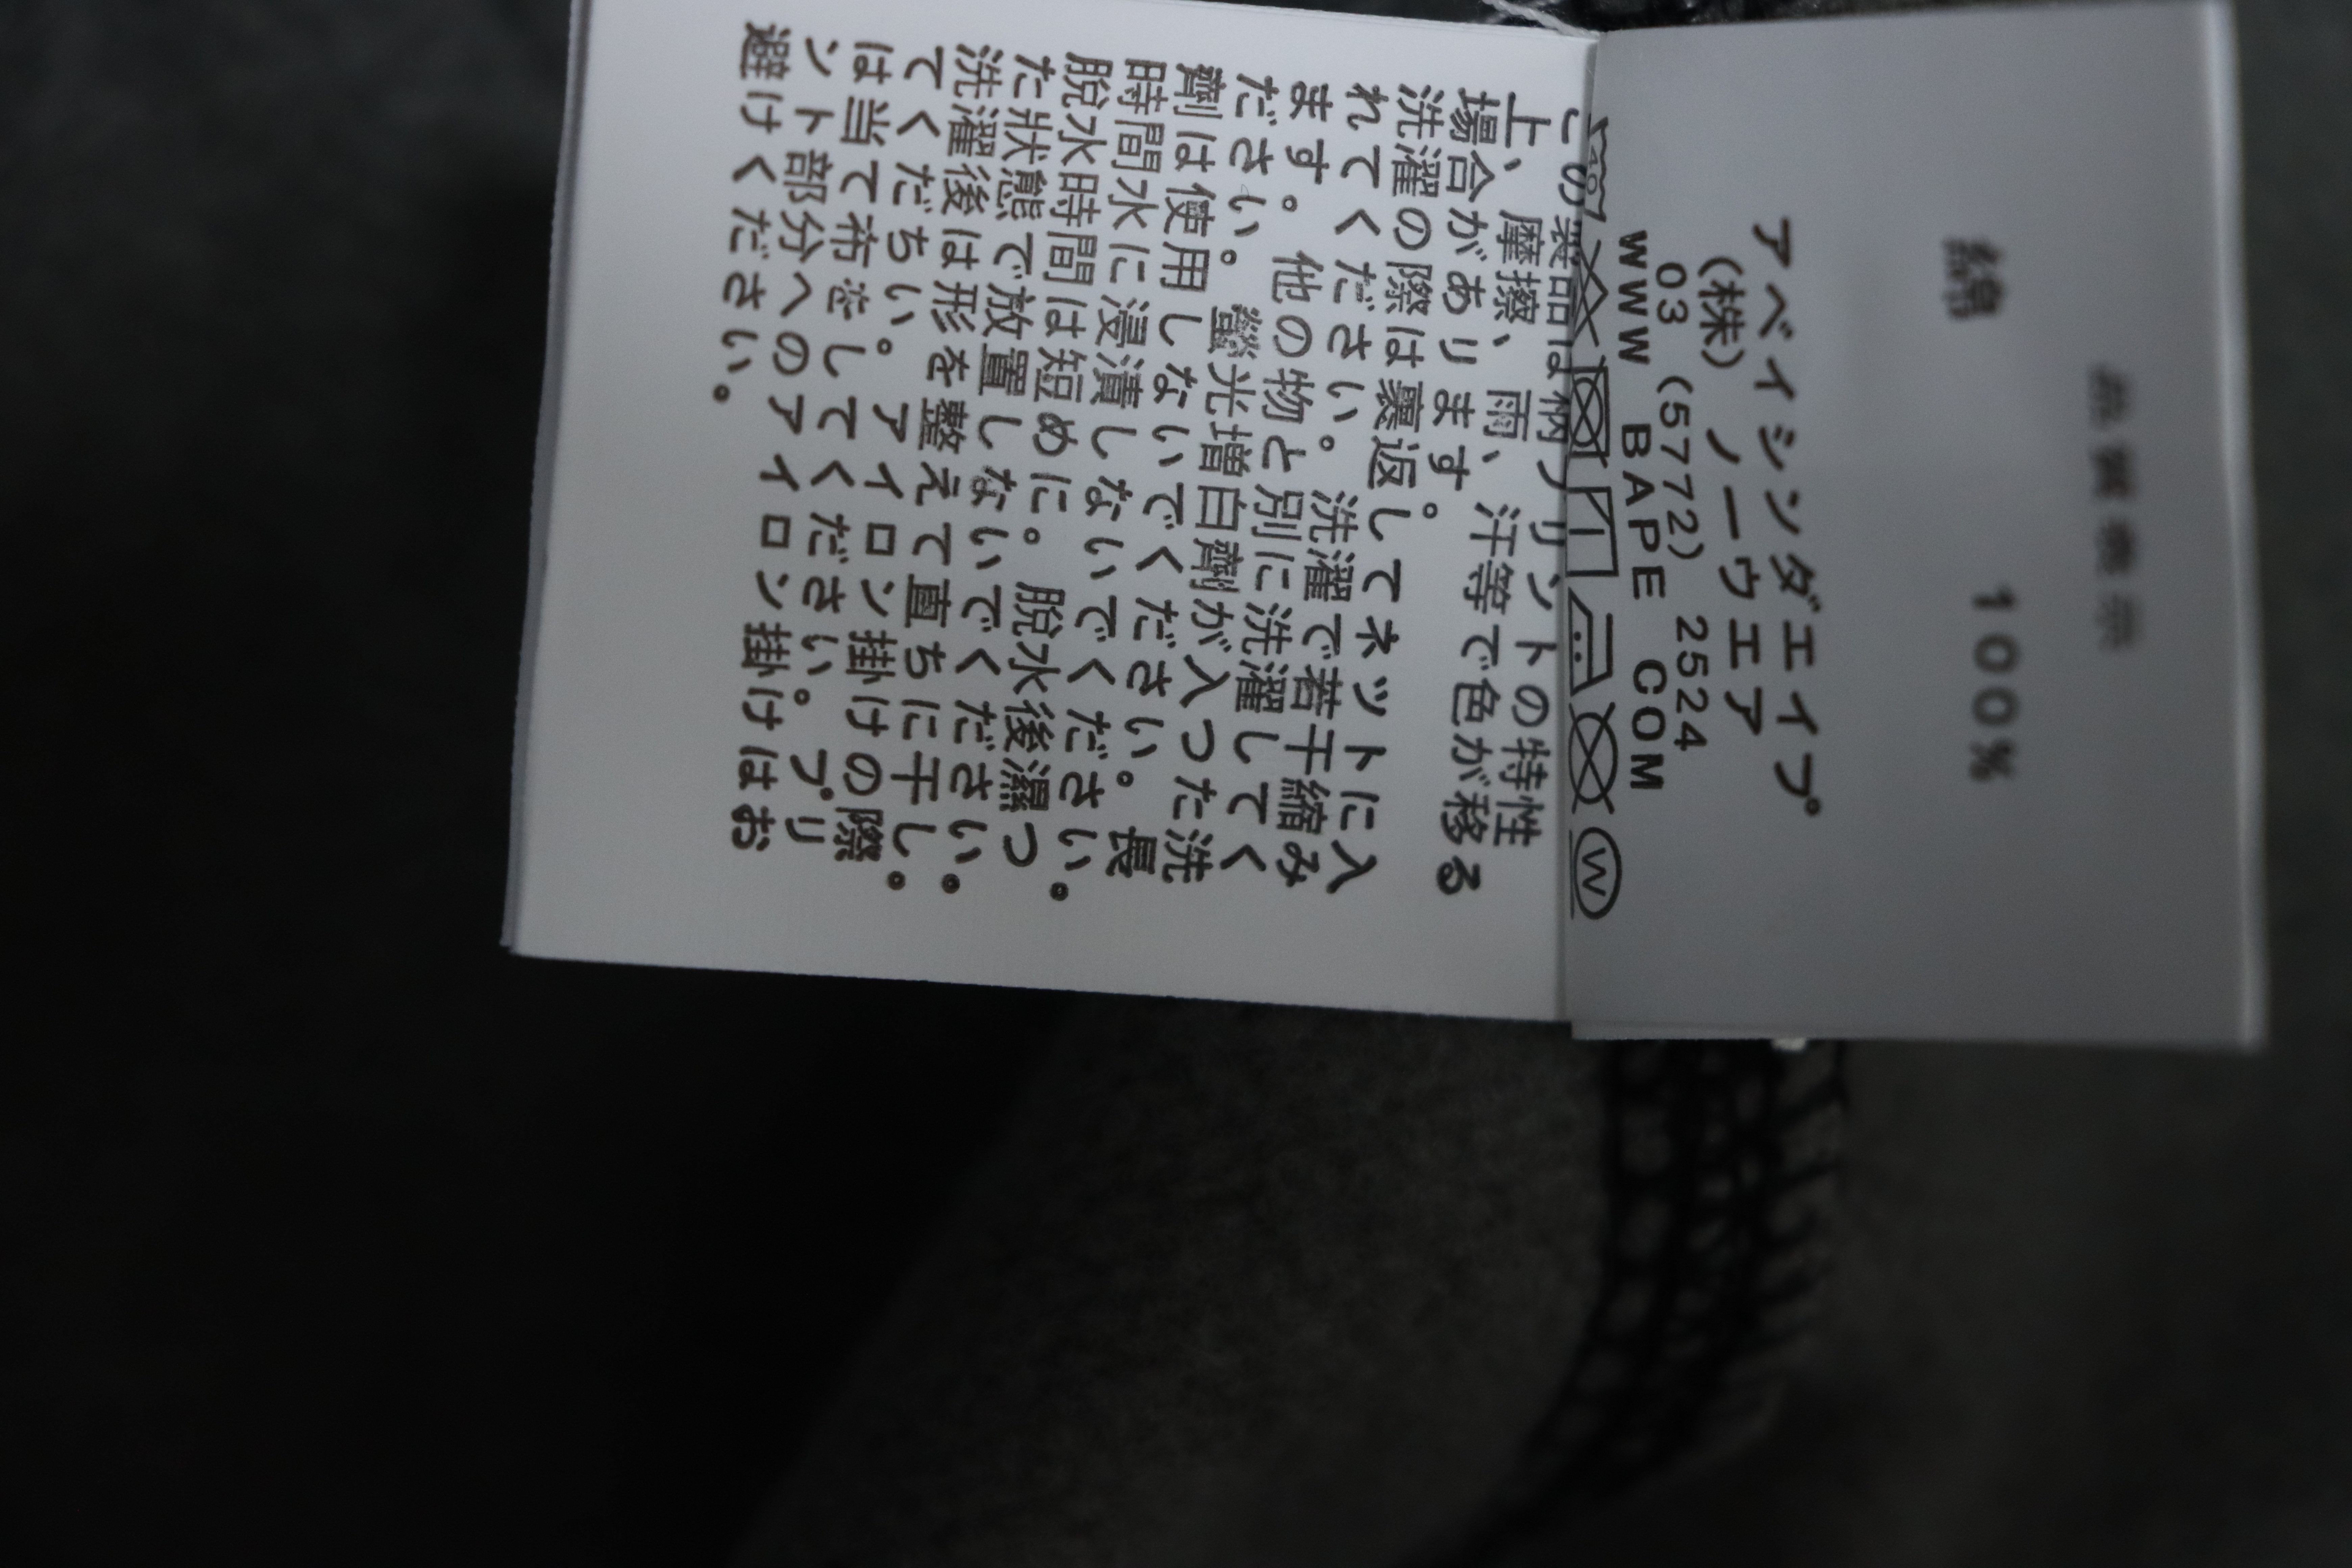 品質表示
綿 100%
アベイシンダエイプ
(株) ノーウエア
03 (5772) 2524
WWW BAPE COM
40 W
この装品は柄プリントの特性
上、摩擦、雨、汗等で色が移る
場合があります。
洗濯の際は裏返してネットに入
れてください。洗濯で若干縮み
ます。他の物と別に洗濯してく
ださい。螢光増白劑が入った洗
劑は使用しないでください。長
時間水に浸漬しないでください。
脫水時間は短めに。脫水後濕つ
た狀態で放置しないでください。
洗濯後は形を整えて直ちに干し。
てくだちい。アイロン掛けの際
は当て布をしてください。プリ
ント部分へのアイロン掛けはお
避けください。